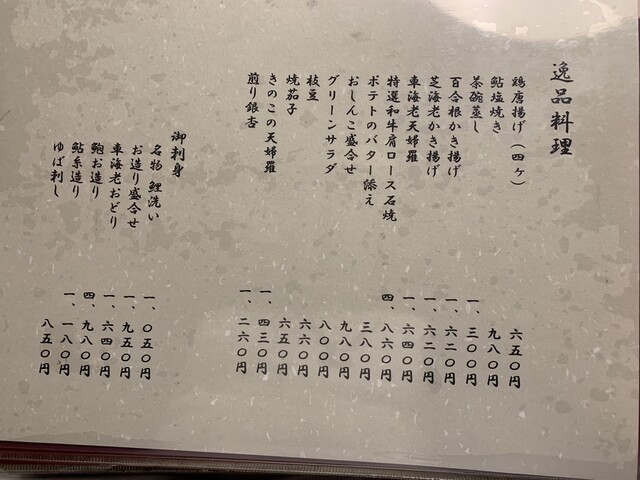 逸品料理
鶏唐揚げ（四ヶ） 六五〇円
鮎塩焼き 九八〇円
茶碗蒸し 一、三〇〇円
百合根かき揚げ 一、六二〇円
芝海老かき揚げ 一、六二〇円
車海老天婦羅 一、六四〇円
特選和牛肩ロース石焼 四、八六〇円
ポテトのバター添え 三八〇円
おしんこ盛合せ 九八〇円
グリーンサラダ 八〇〇円
枝豆 六六〇円
焼茄子 六五〇円
きのこの天婦羅 一、四三〇円
煎り銀杏 一、二六〇円
御刺身
名物 鯉洗い 一、〇五〇円
お造り盛合せ 一、九五〇円
車海老おどり 一、六四〇円
鮑お造り 四、九八〇円
鮎糸造り 一、一八〇円
ゆば刺し 八五〇円